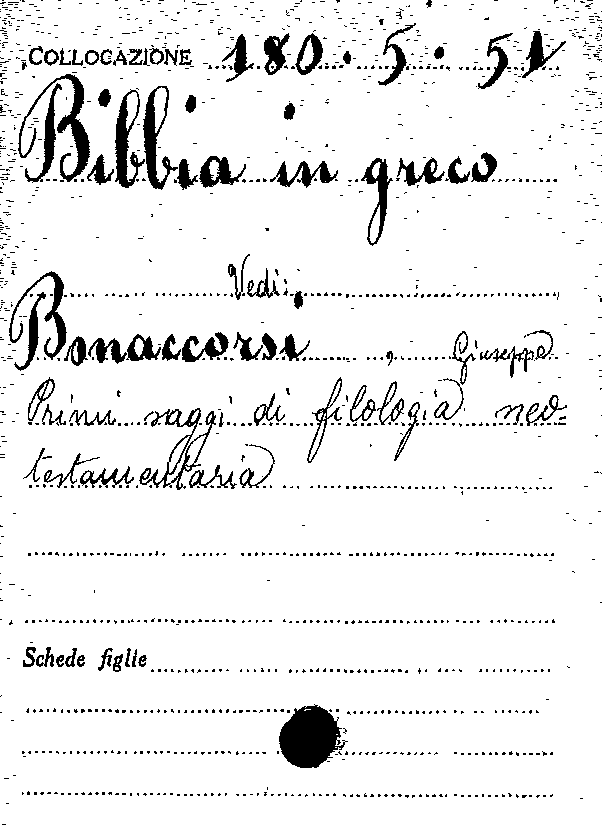 COLLOCAZIONE 180.5.51
Bibbia in greco
Vedi:
Bonaccorsi, Giuseppe
Primi saggi di filologia neo-
testamentaria
Schede figlie